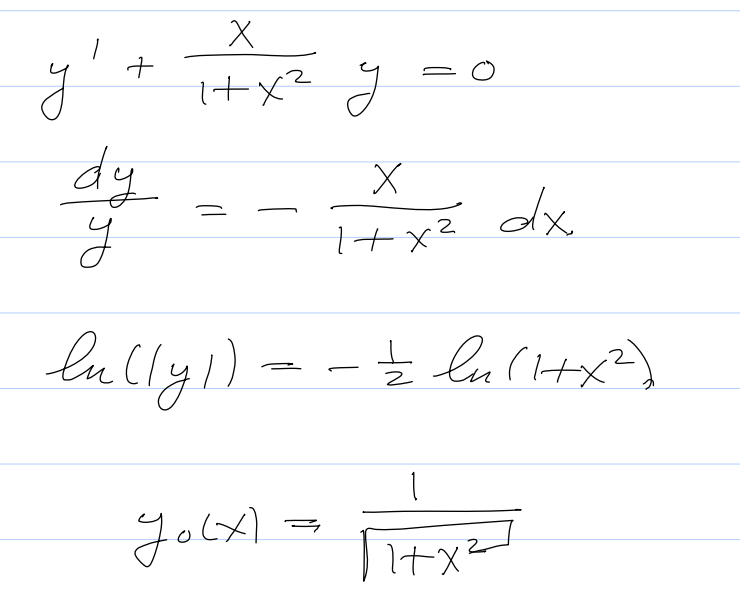 y' + \frac{x}{1+x^2} y = 0
\frac{dy}{y} = - \frac{x}{1+x^2} dx
ln(|y|) = - \frac{1}{2} ln(1+x^2)
y_0(x) = \frac{1}{\sqrt{1+x^2}}